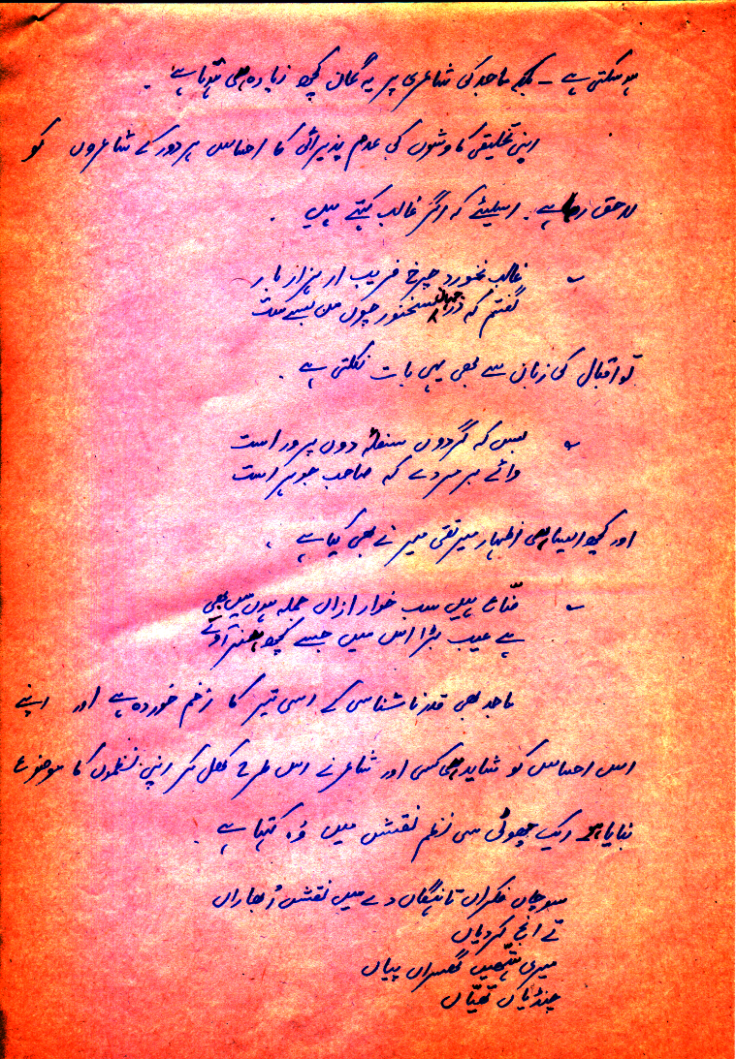 ہو سکتی ہے ۔ بلکہ ماجد کی شاعری پر یہ گمان کچھ زیادہ ہی ہوتا ہے ۔
اپنی تخلیقی کاوشوں کی عدم پذیرائی کا احساس ہر دور کے شاعروں کو
لاحق رہا ہے ۔ اسلیئے کہ اگر غالب کہتے ہیں ۔
غالب نخورد چرخ فریب ار ہزار بار
گفتم کہ در جہاں سخنور چوں من بسے ست
تو اقبال کی زبان سے بھی یہی بات نکلتی ہے ۔
بس کہ گردوں سفلہ و دوں پرور است
وائے بر مردے کہ صاحب جوہر است
اور کچھ ایسا ہی اظہار میر تقی میر نے بھی کیا ہے ۔
صنّاع ہیں سب خوار ازاں جملہ ہوں میں بھی
ہے عیب بڑا اس میں جسے کچھ ہنر آوے
ماجد بھی قدر ناشناسی کے اسی تیر کا زخم خوردہ ہے اور اپنے
اس احساس کو شاید ہی کسی اور شاعر نے اس طرح کھل کر اپنی نظموں کا موضوع
بنایا ہو ایک چھوٹی سی نظم نقش میں وُہ کہتا ہے ۔
سوچاں فکراں تانہگاں دے میں نقش اُبھاراں
تے انج کردیاں
میری